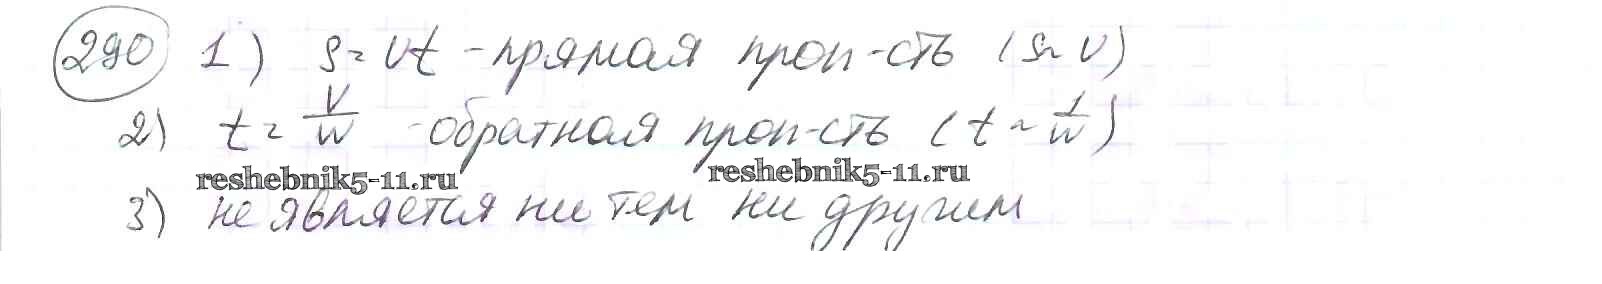 290 1) S = Vt - прямая проп-сть (S ~ V)
2) t = V/W - обратная проп-сть (t ~ 1/W)
reshebnik5-11.ru reshebnik5-11.ru
3) не является ни тем ни другим